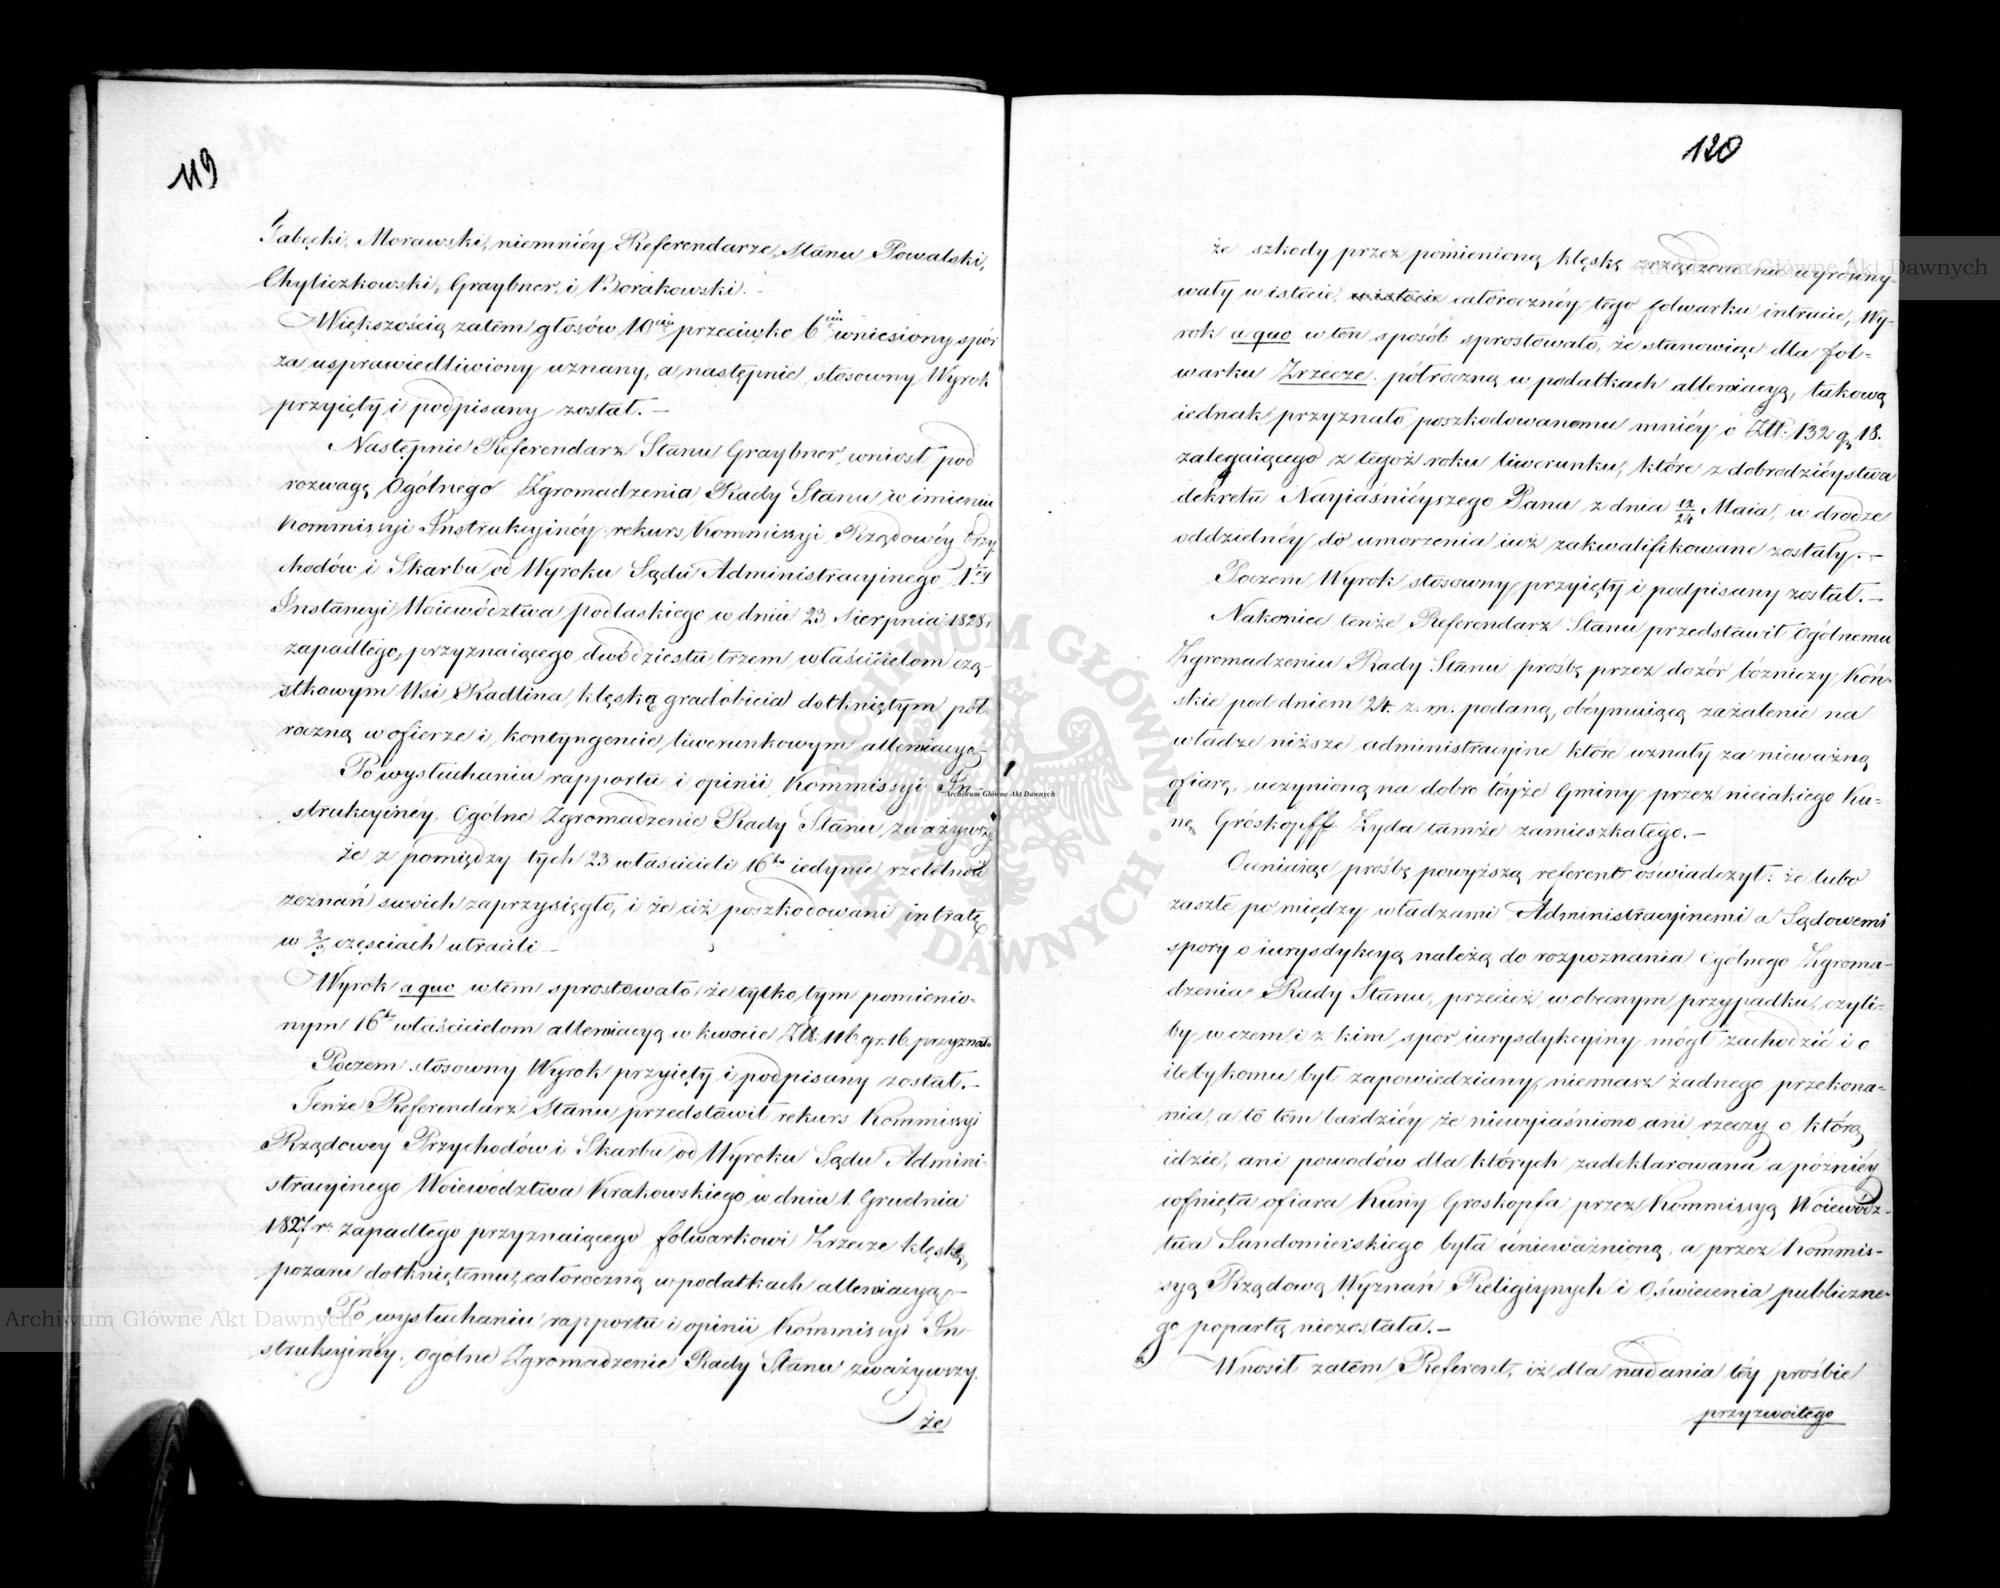 119
Jabęcki, Morawski, niemniéy Referendarze Stanu Powalski,
Chyliczkowski, Graybner, i Borakowski. –
Większością zatem głosów 10ciu przeciwko 6ciu wniesiony spór
za usprawiedliwiony uznany, a następnie stosowny Wyrok
przyięty i podpisany został. –
Następnie Referendarz Stanu Graybner, wniosł pod
rozwagę Ogólnego Zgromadzenia Rady Stanu w imieniu
Kommissyi Instrukcyinéy rekurs Kommissyi Rządowéy Przy
chodów i Skarbu od Wyroku Sądu Administracyinego 1éy
Instancyi Woiewództwa podlaskiego w dniu 23 Sierpnia 1828 r.
zapadłego, przyznaiącego dwódziestu trzem właścicielom czą-
stkowym Wsi Radlina, klęską gradobicia dotkniętym pół
roczną w ofierze i kontyngencie liwerunkowym allewiacyą –
Po wysłuchaniu rapportu i opinii Kommissyi In-
strukcyinéy, Ogólne Zgromadzenie Rady Stanu zważywszy
że z pomiędzy tych 23 właścicieli 16tu iedynie rzetelność
zeznań swoich zaprzysięgło, i że ciż poszkodowani intratę
w 2/3 częsciach utracili –
Wyrok a quo w tem sprostowało że tylko tym pomienio-
nym 16tu właścicielom allewiacyą w kwocie Złt. 116 gr. 16 przyznało
Poczem stosowny Wyrok przyięty i podpisany został. –
Tenże Referendarz Stanu przedstawił rekurs Kommissyi
Rządowey Przychodów i Skarbu od Wyroku Sądu Admini-
stracyinego Woiewództwa Krakowskiego w dniu 1. Grudnia
1827 r. zapadłego przyznaiącego folwarkowi Zrzecze klęską
pożaru dotkniętemu, całoroczną w podatkach allewiacyą –
Po wysłuchaniu rapportu i opinii Kommissyi In-
strukcyinéy, Ogólne Zgromadzenie Rady Stanu zważywszy,
że
120
że szkody przez pomienioną klęskę zrządzone nie wyrówny-
wały w istocie, w istocie całorocznéy tego folwarku intracie, Wy-
rok a quo w ten sposób sprostowało, że stanowiąc dla fol-
warku Zrzecze półroczną w podatkach allewiacyą, takową
iednak przyznało poszkodowanemu mniéy o Złt. 132 gr 18.
zalegaiącego z tegoż roku liwerunku, które z dobrodzieystwa
dekretu Nayiaśniéyszego Pana z dnia 12/24 Maia, w drodze
oddzielnéy do umorzenia iuż zakwalifikowane zostały. –
Poczem Wyrok stosowny przyięty i podpisany został. –
Nakoniec tenże Referendarz Stanu przedstawił Ogólnemu
Zgromadzeniu Rady Stanu prośbę przez dozór bóżniczy Koń-
skie pod dniem 24. z. m. podaną, obeymuiącą zażalenie na
władze niższe administracyine które uznały za nieważną
ofiarę, uczynioną na dobro téyże Gminy przez nieiakiego Ku-
nę Gróskopff Żyda tamże zamieszkałego. –
Oceniaiąc prośbę powyższą referent oświadczył: że lubo
zaszłe pomiędzy władzami Administracyinemi a Sądowemi
spory o iurysdykcyą należą do rozpoznania Ogólnego Zgroma-
dzenia Rady Stanu, przecież w obecnym przypadku, czyli-
by w czem i z kim spór iurysdykcyiny mógł zachodzić i o
ileby komu był zapowiedziany, niemasz żadnego przekona-
nia, a to tem bardziéy że niewyiaśniono ani rzeczy o którą
idzie, ani powodów dla których zadeklarowana a późniéy
cofnięta ofiara Kuny Groskopfa przez Kommissyą Woiewódz-
twa Sandomierskiego była unieważnioną, a przez Kommis-
syą Rządową Wyznań Religiynych i Oświecenia publiczne-
go popartą niezostała. –
Wnosił zatem Referent, iż dla nadania téy prośbie
przyzwoitego
Archiwum Główne Akt Dawnych
Archiwum Główne Akt Dawnych
Archiwum Główne Akt Dawnych
ARCHIWUM GŁÓWNE AKT DAWNYCH